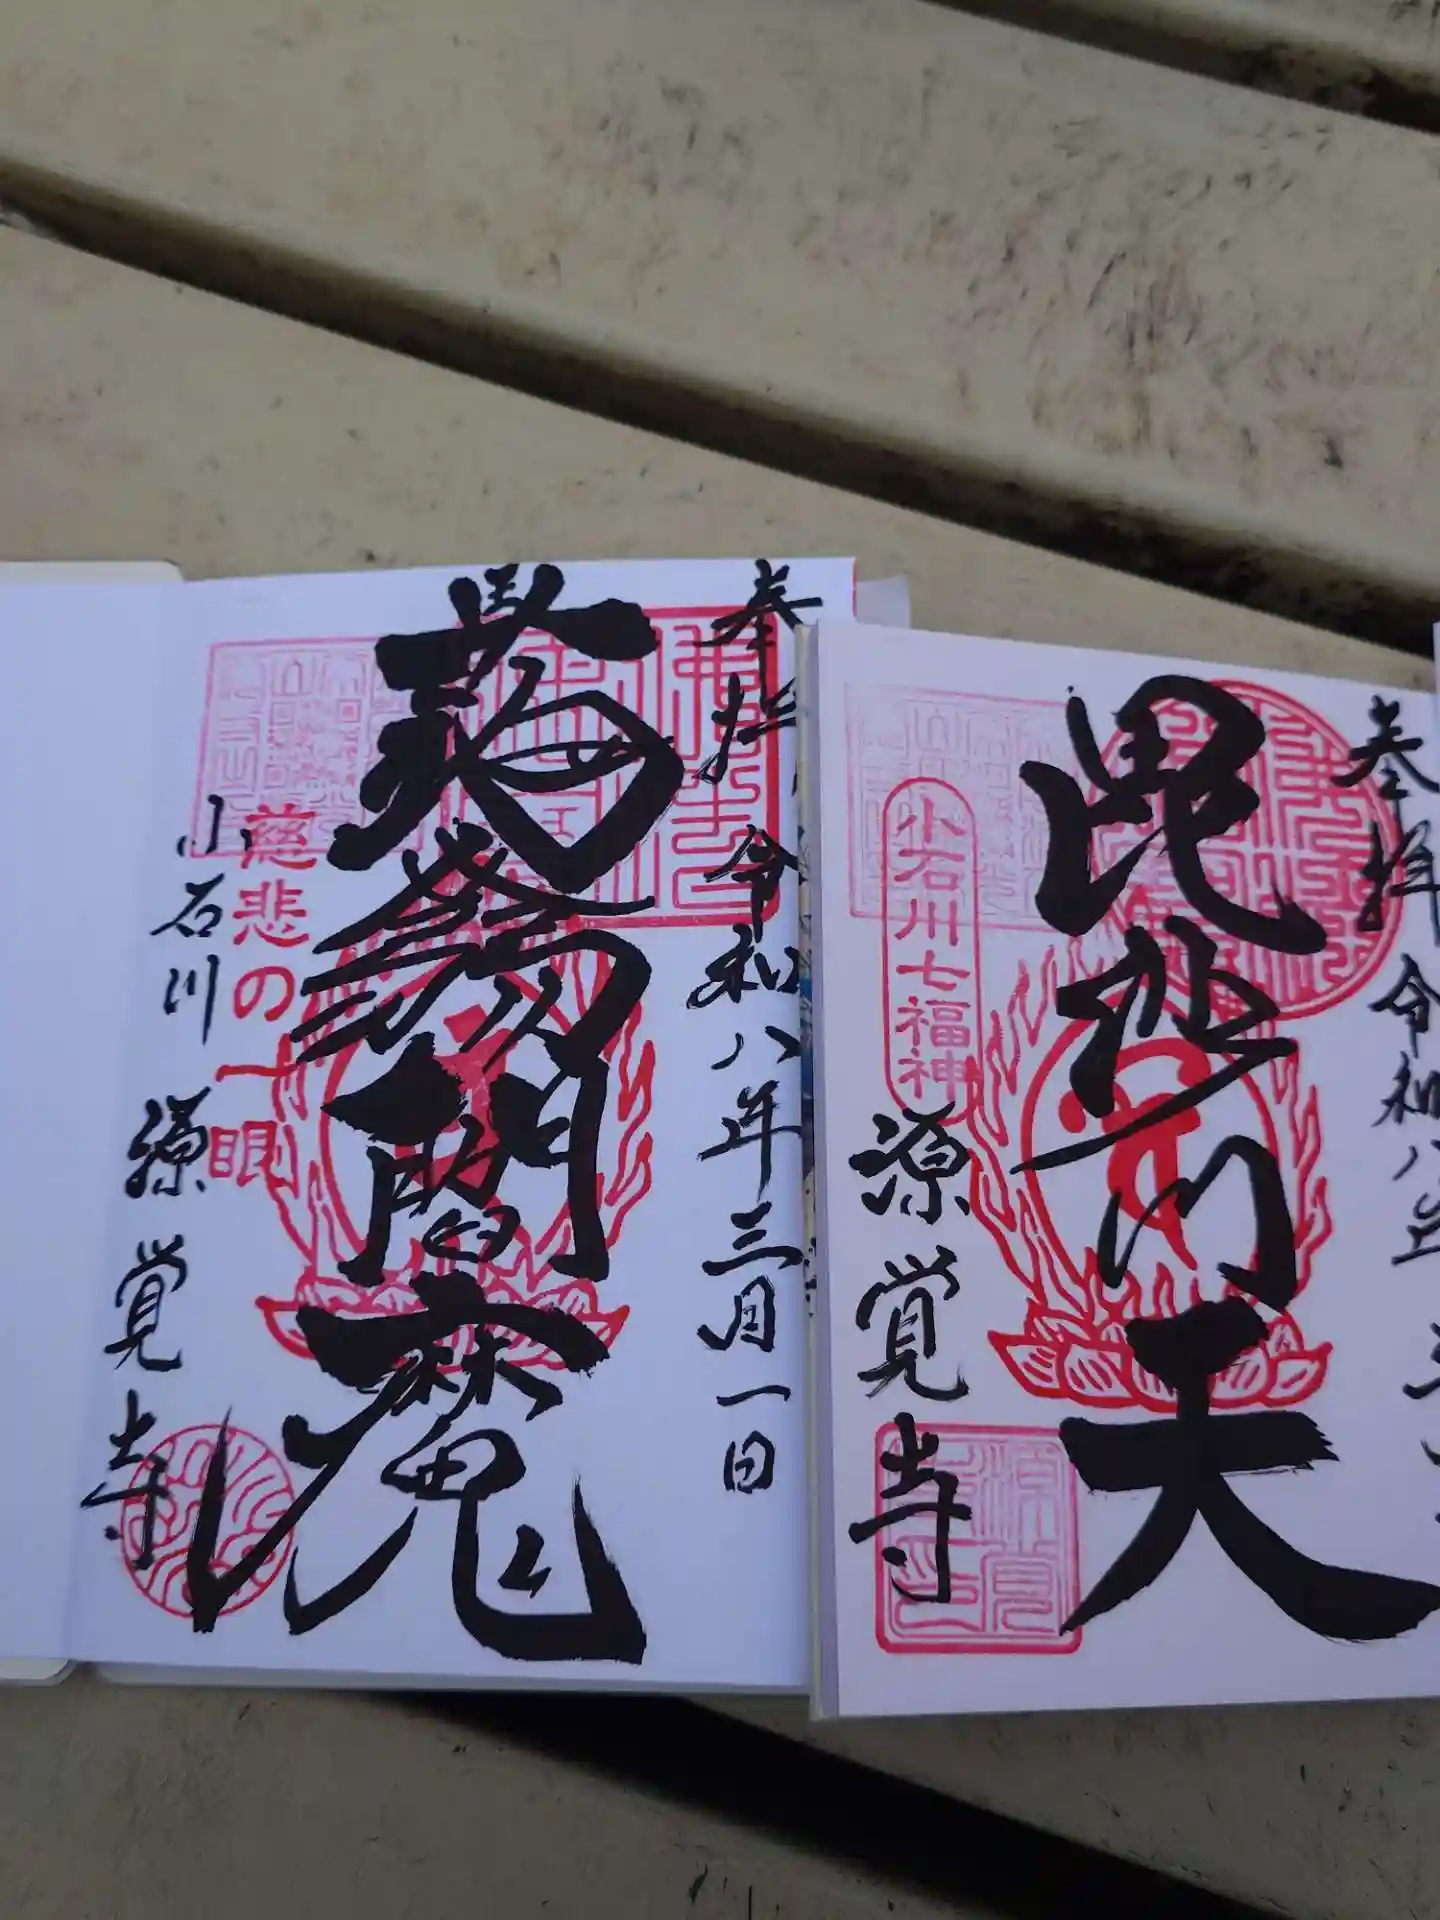 奉拝 令和八年三月一日
蒟蒻閻魔
慈悲の一眼
小石川 源覚寺
奉拝 令和八年
毘沙門天
小石川七福神
源覚寺